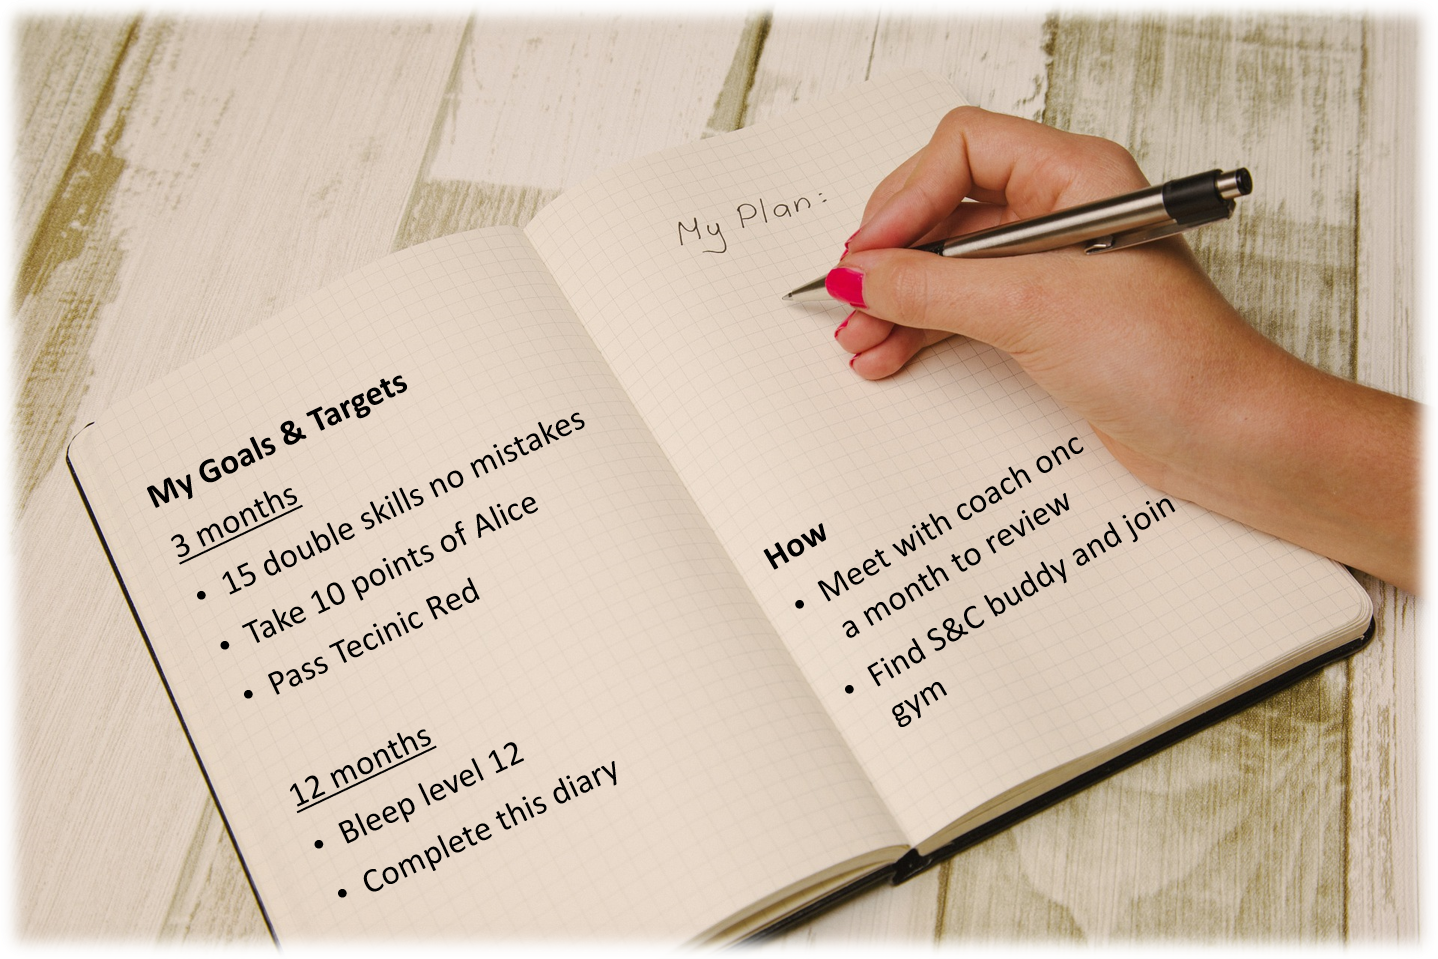 My Goals & Targets
3 months
• 15 double skills no mistakes
• Take 10 points of Alice
• Pass Tecinic Red
12 months
• Bleep level 12
• Complete this diary
My Plan:
How
• Meet with coach onc
a month to review
• Find S&C buddy and join
gym